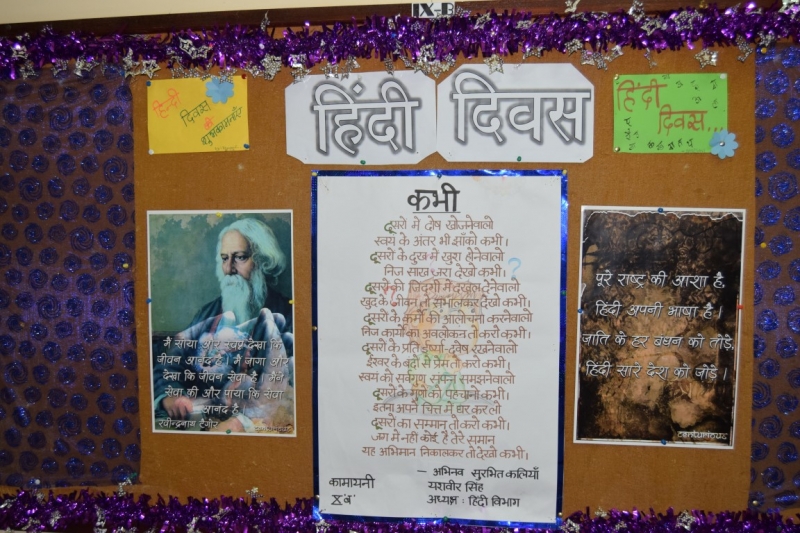 IX-B
हिंदी
दिवस
की
शुभकामनाएँ
हिंदी दिवस
हिंदी
दिवस...
मैं सोया और स्वप्न देखा कि
जीवन आनंद है। मैं जागा और
देखा कि जीवन सेवा है। मैंने
सेवा की और पाया कि सेवा
आनंद है।
रवीन्द्रनाथ टैगोर
कभी
दूसरों में दोष खोजनेवालो
स्वयं के अंतर भी झाँको कभी।
दूसरों के दुख में खुश होनेवालो
निज साख ज़रा देखो कभी।
दूसरों की ज़िंदगी में दखल देनेवालो
खुद के जीवन तो संभालकर देखो कभी।
दूसरों के कर्मों की आलोचना करनेवालो
निज कार्यों का अवलोकन तो करो कभी।
दूसरों के प्रति ईर्ष्या-द्वेष रखनेवालो
ईश्वर के बंदों से प्रेम तो करो कभी।
स्वयं को सर्वगुण संपन्न समझनेवालो
दूसरों के गुणों को पहचानो कभी।
इतना अपने चित्त में धर कर लो
दूसरों का सम्मान तो करो कभी।
जग में नहीं कोई है तेरे समान
यह अभिमान निकालकर तो देखो कभी।
– अभिनव सुरभित कलियाँ
कामायनी
X 'ब'
यशवीर सिंह
अध्यक्ष : हिंदी विभाग
पूरे राष्ट्र की आशा है,
हिंदी अपनी भाषा है।
जाति के हर बंधन को तोड़े,
हिंदी सारे देश को जोड़े।